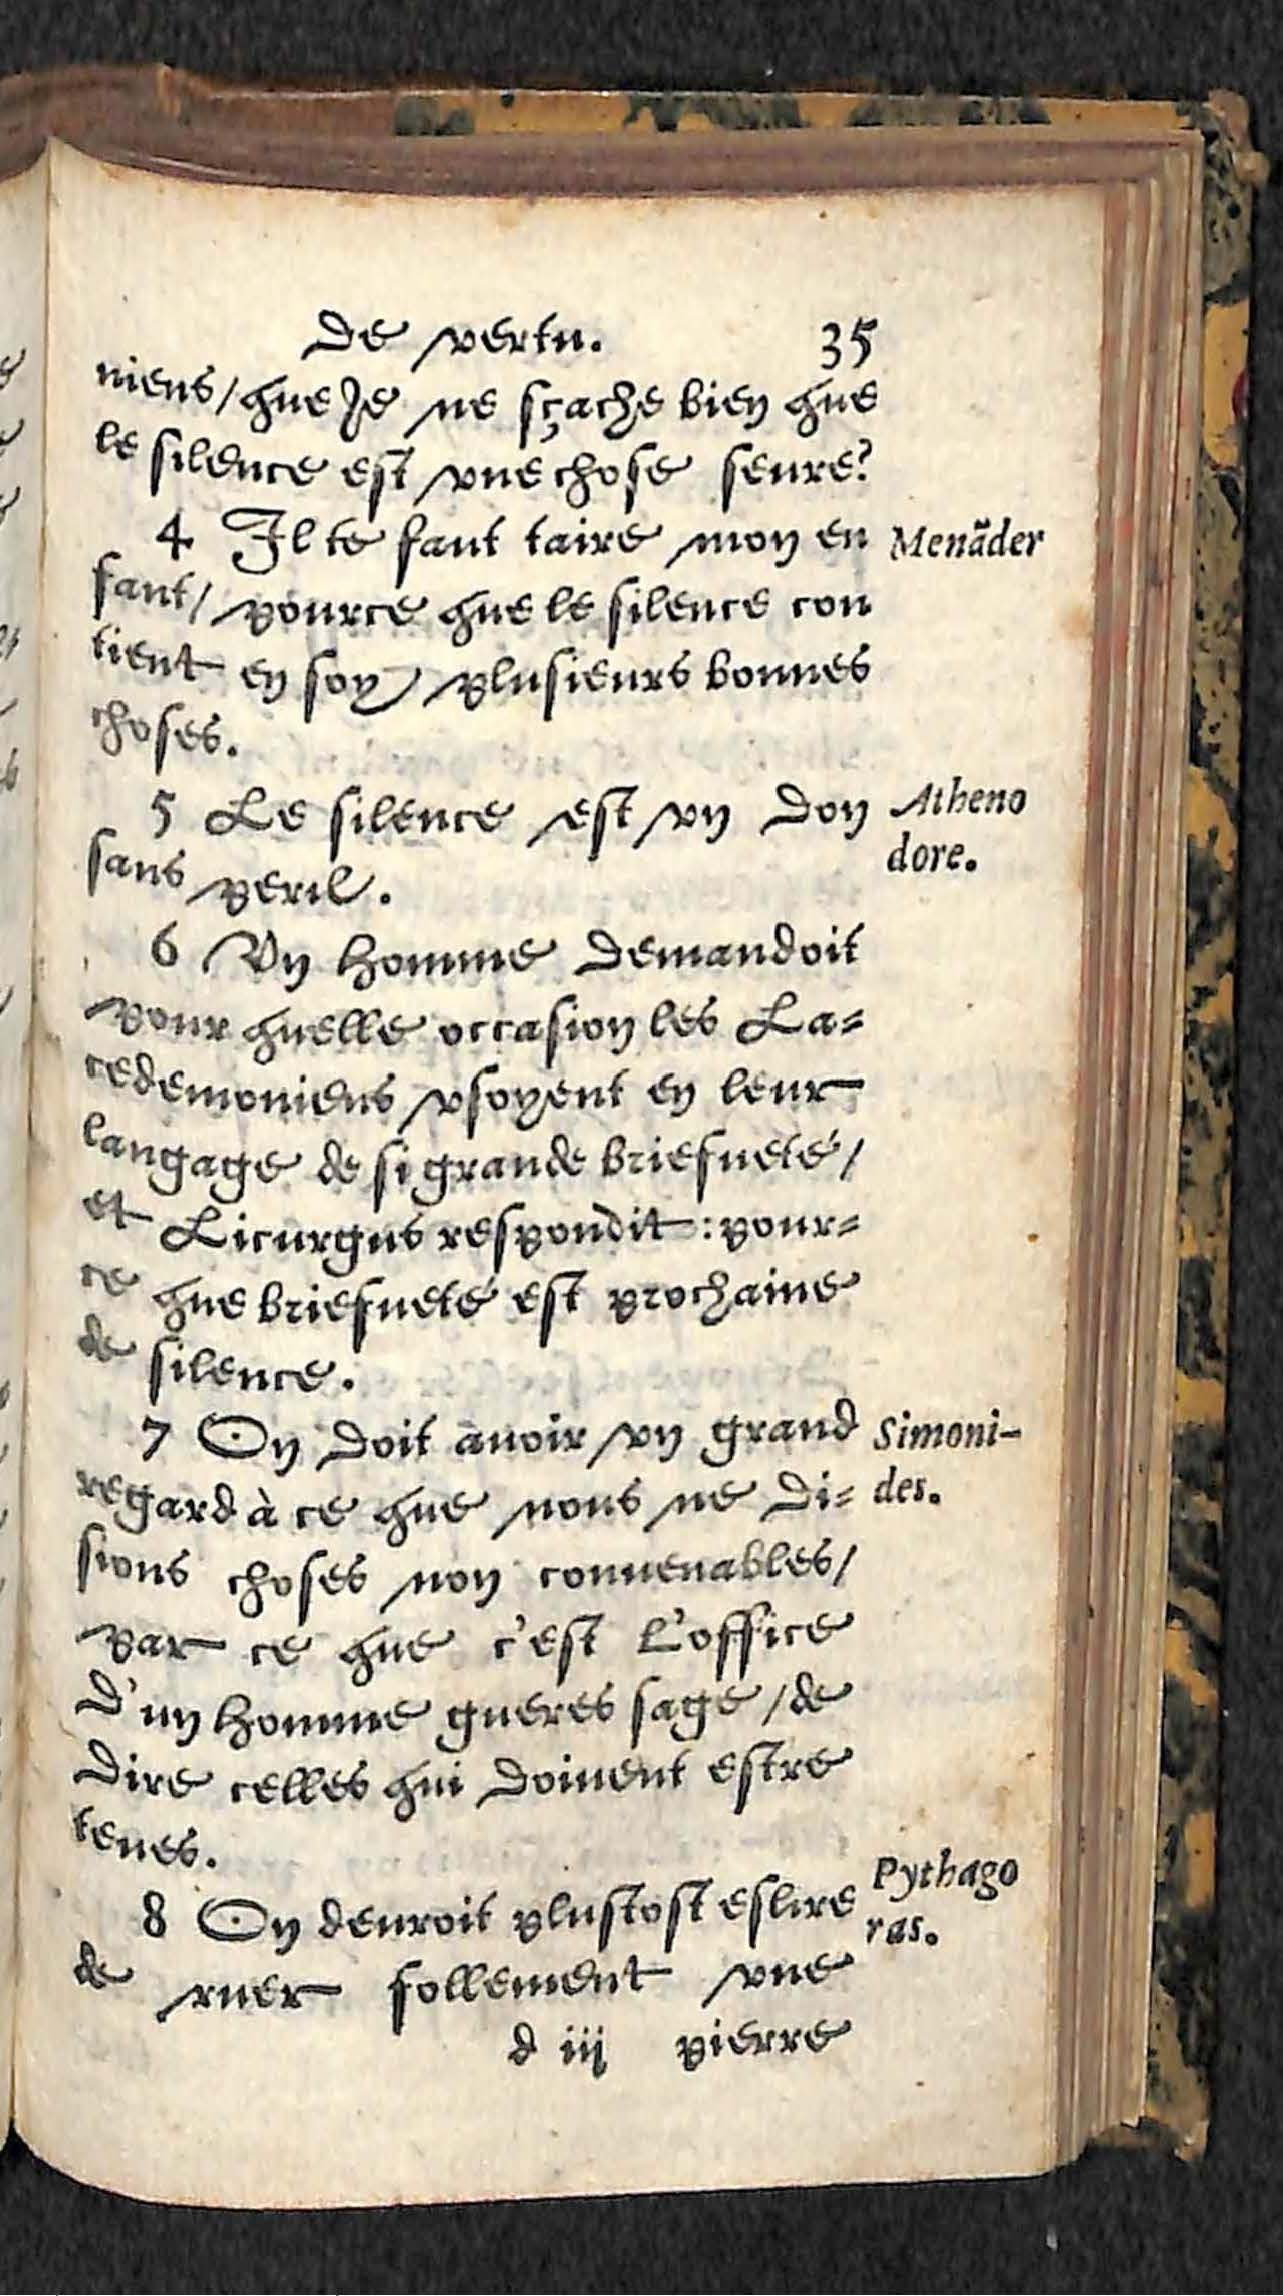 De vertu. 35
niens/ que Je ne sçache bien que
le silence est vne chose seure?
4 Il te faut taire mon en
fant/ pource que le silence con
tient en soy plusieurs bonnes
choses.
Menãder
5 Le silence est vn don
sans peril.
Atheno
dore.
6 Vn homme demandoit
pour quelle occasion les La=
cedemoniens vsoyent en leur
langage de si grande briefueté/
et Licurgus respondit: pour=
ce que briefueté est prochaine
de silence.
7 On doit auoir vn grand
regard à ce que nous ne di=
sions choses non conuenables/
par ce que c'est l'office
d'un homme gueres sage/ de
dire celles qui doiuent estre
teues.
Simoni-
des.
8 On deuroit plustost eslire
de ruer follement vne
Pythago
ras.
d iij pierre